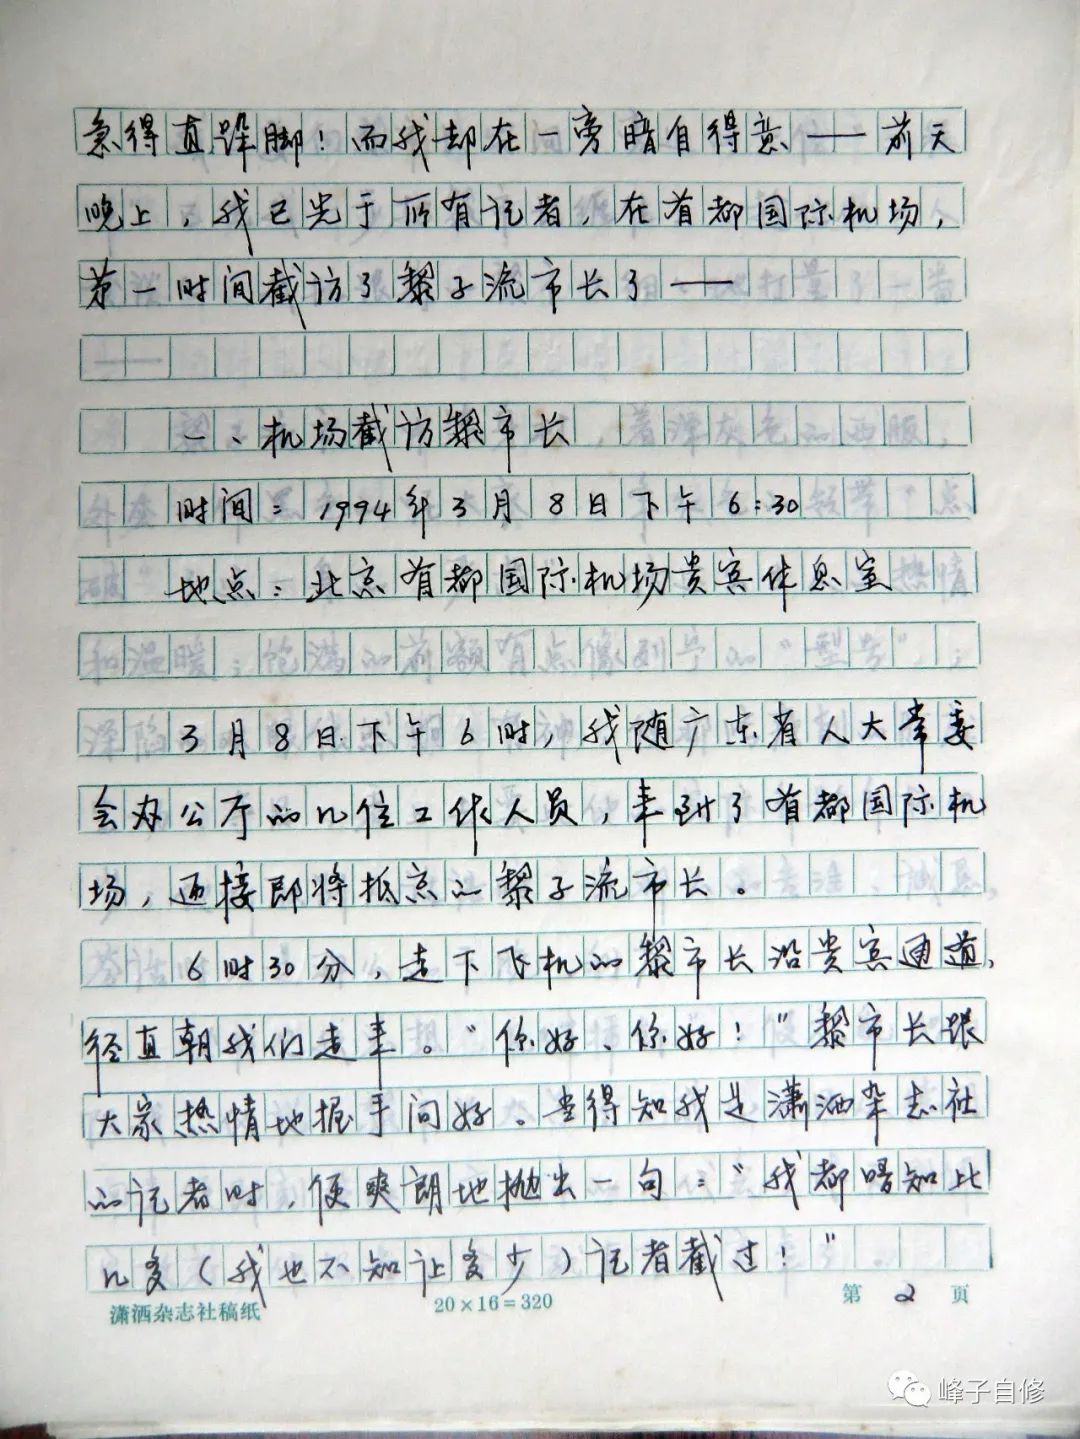 急得直跺脚！而我却在一旁暗自得意——前天
晚上，我已先于所有记者，在首都国际机场，
第一时间截访了黎子流市长了——
一、机场截访黎市长
时间：1994年3月8日下午6:30
地点：北京首都国际机场贵宾休息室
3月8日下午6时，我随广东省人大常委
会办公厅的几位工作人员，来到了首都国际机
场，迎接即将抵京的黎子流市长。
6时30分，走下飞机的黎市长沿贵宾通道，
径直朝我们走来。“你好、你好！”黎市长跟
大家热情地握手问好。当得知我是潇洒杂志社
的记者时，便爽朗地抛出一句：“我都唔知比
几多（我也不知让多少）记者截过！”
潇洒杂志社稿纸 20×16=320 第 2 页
峰子自修